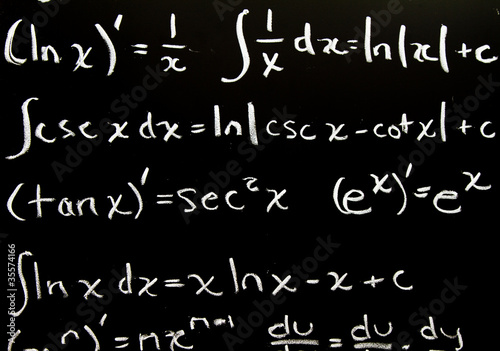 (ln x)' = 1/x   ∫ 1/x dx = ln|x| + c
∫csc x dx = ln|csc x - cot x| + c
(tan x)' = sec²x   (eˣ)' = eˣ
∫ln x dx = x ln x - x + c
n)' = nxⁿ⁻¹   du = du . dy
Adobe Stock | #35574166